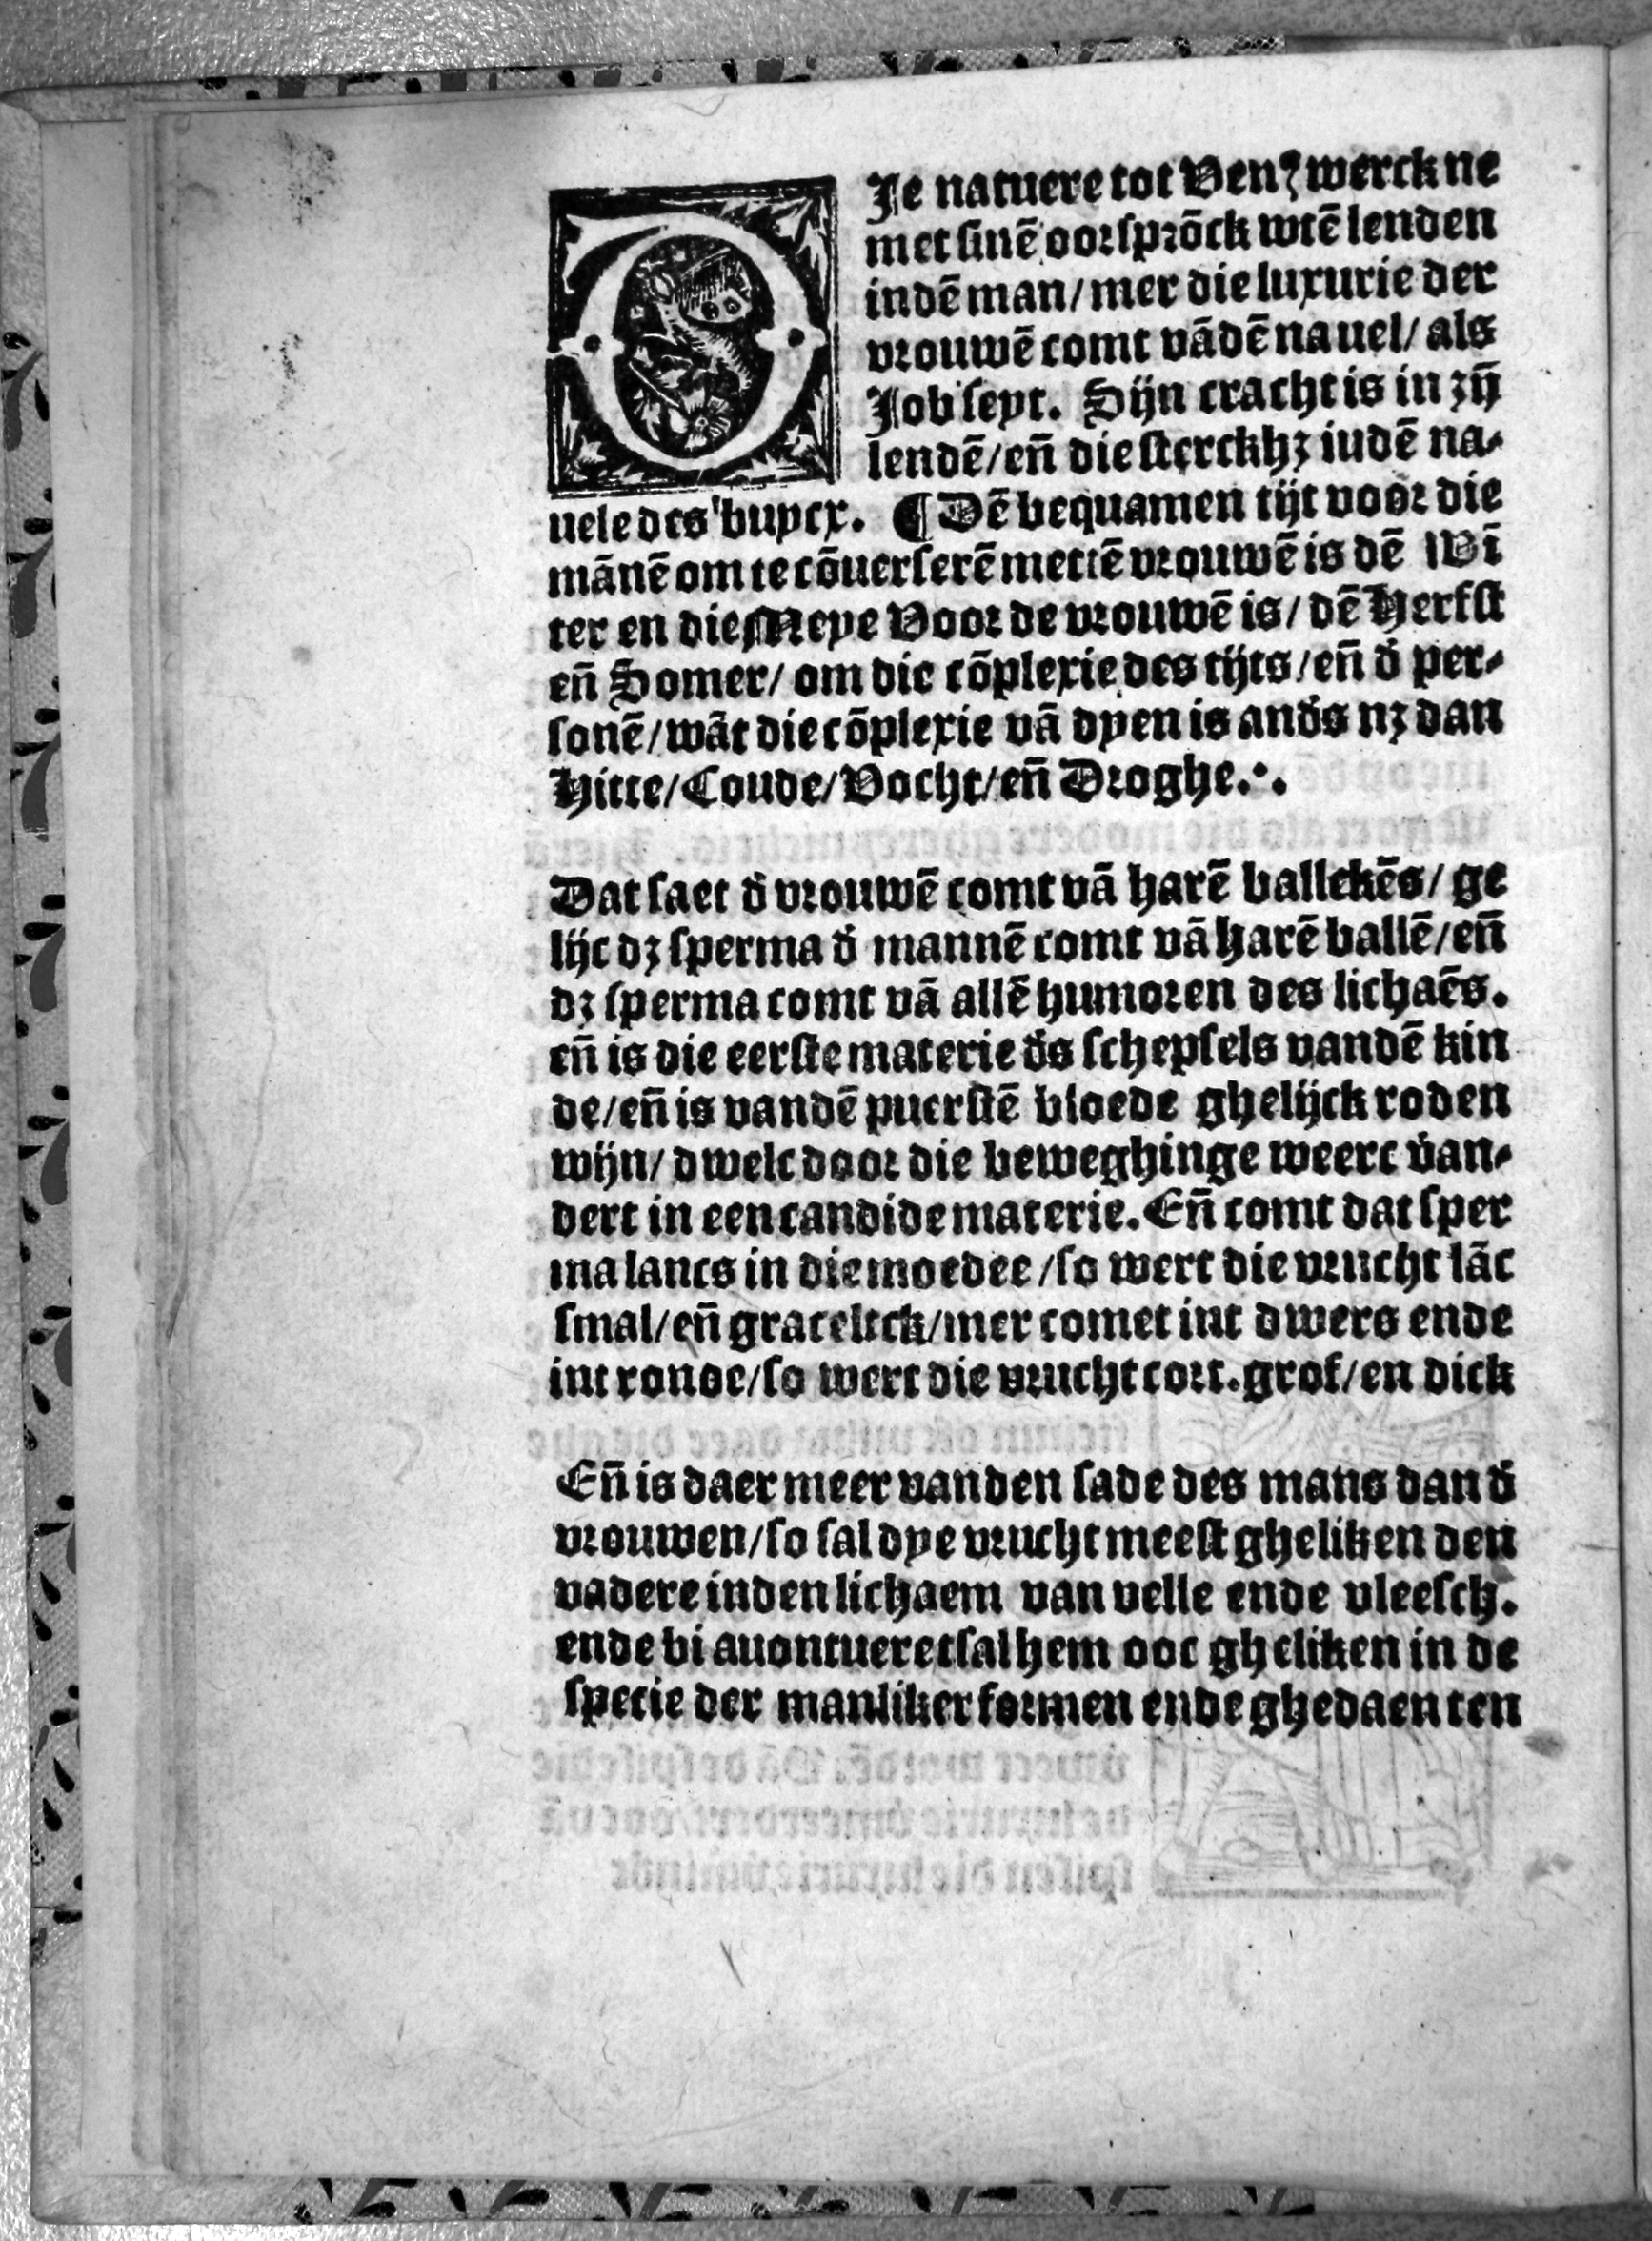 DIe natuere tot Venꝰ werck ne
met sinē oorsprōck wtē lenden
indē man/mer die luxurie der
vrouwē comt vādē nauel/ als
Job seyt. Sijn cracht is in zȳ
lendē/en̄ die sterckhꝫ iudē na⸗
uele des buycx. ¶ Dē bequamen tijt voor die
mānē om te cōuerserē mettē vrouwē is dē Wī
ter en die Meye Voor de vrouwē is/ dē Herfst
en̄ Somer/ om die cōplexie des tijts/en̄ d̄ per⸗
sonē/wāt die cōplexie vā dyen is and̄s nꝫ dan
Hitte/Coude/Vocht/en̄ Droghe.·.
Dat saet d̄ vrouwē comt vā harē ballekēs/ ge
lijc dꝫ sperma d̄ mannē comt vā harē ballē/en̄
dꝫ sperma comt vā allē humoren des lichaēs.
en̄ is die eerste materie d̄s schepsels vandē kin
de/en̄ is vandē puerstē bloede ghelijck roden
wijn/ dwelc door die beweghinge weert v̄an⸗
dert in een candide materie. En̄ comt dat sper
ma lancs in die moedee/so wert die vrucht lāc
smal/en̄ gracelick/mer comet int dwers ende
int ronde/so wert die vrucht cort. grof/en dick
En̄ is daer meer vanden sade des mans dan d̄
vrouwen/so sal dye vrucht meest gheliken den
vadere inden lichaem van velle ende vleesch.
ende bi auontueret sal hem ooc gheliken in de
specie der manliker formen ende ghedaenten